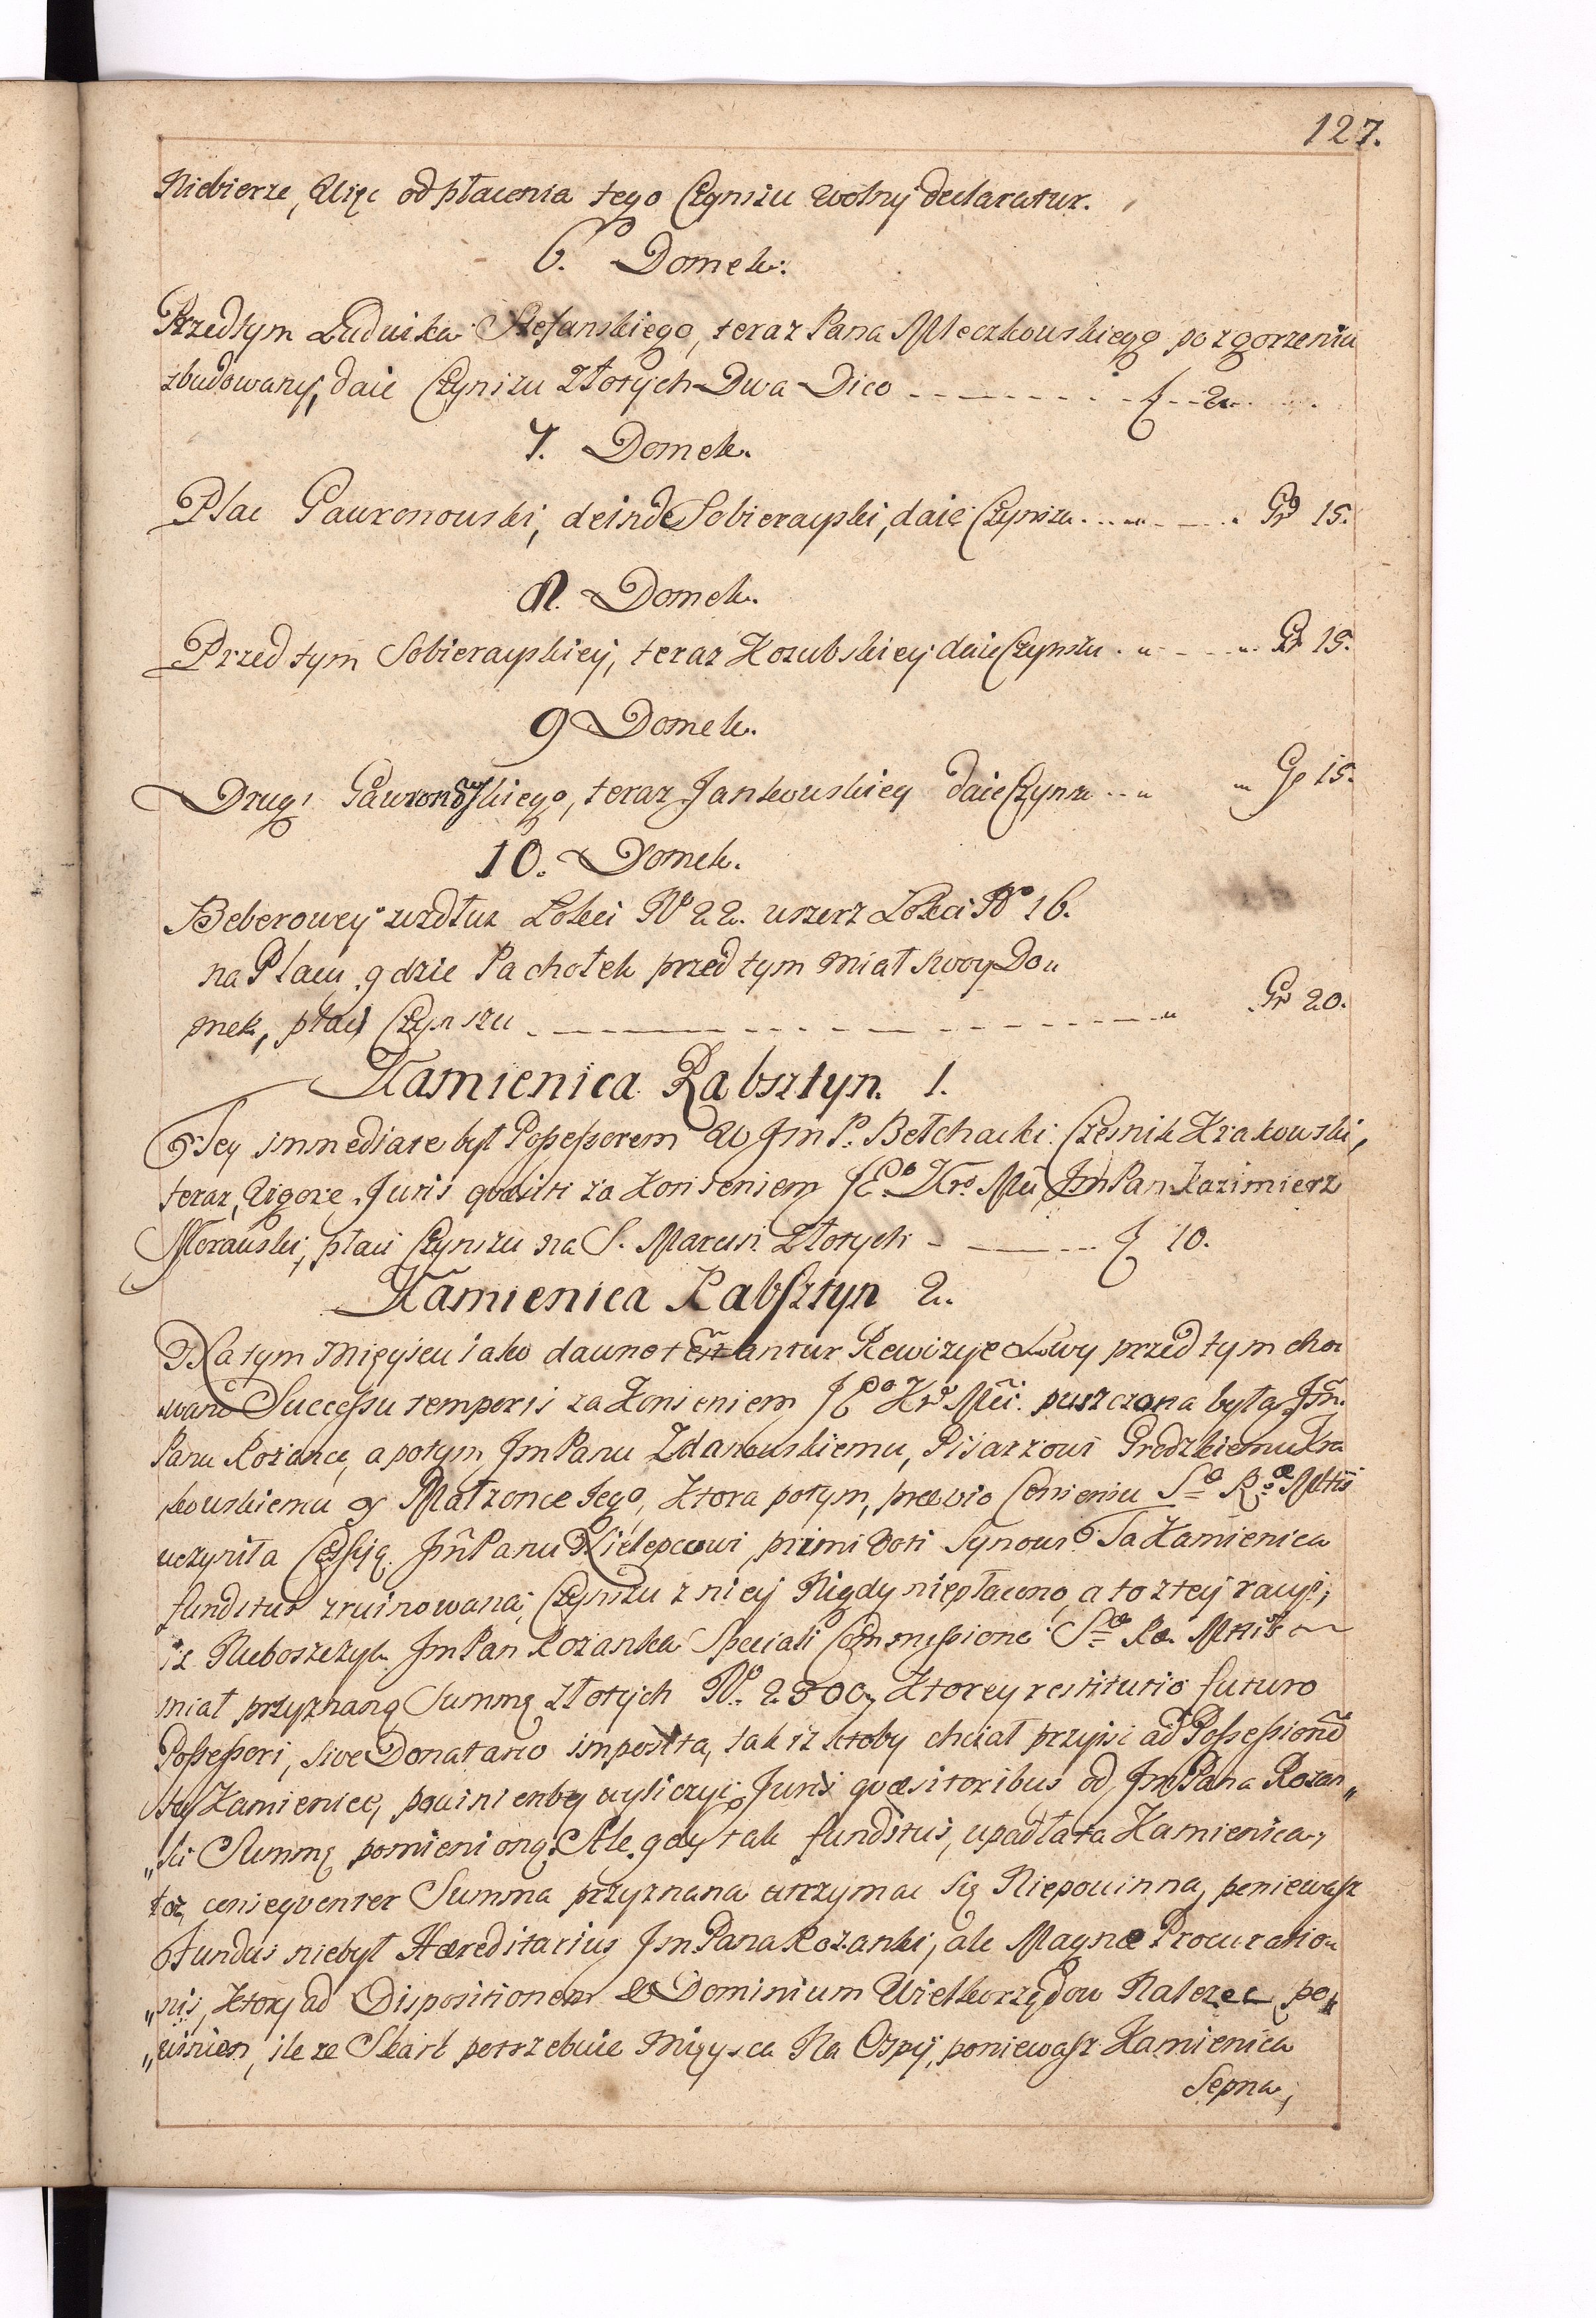 127.
Niebierze, Więc od płacenia tego Czynszu wolny declaratur.
6. Domek.
Przedtym Ludwika Stefanskiego, teraz Pana Mleczkowskiego po zgorzeniu
zbudowany, daie Czynszu Złotych Dwa Dico - - - - - - - f - - 2 - -
7. Domek.
Plac Gawronowski, deinde Sobierayski, daie Czynszu - - - - - Gr 15.
8. Domek.
Przed tym Sobierayskiey, teraz Kozubskiey daie Czynszu - - - - Gr 15.
9 Domek.
Drugi Gawronowskiego, teraz Jankowskiey daie Czynszu - - - Gr 15.
10. Domek.
Beberowey wzdłuz Lokci No 22. wszerz Lokci No 16.
na Placu gdzie Pachołek przed tym miał swoy Do„
mek, płaci Czynszu - - - - - - - - - - Gr 20.
Kamienica Rabsztyn. 1.
Tey immediate był Possessorem W JmP. Bełchacki Czesnik Krakowski,
teraz, Vigore Juris quaesiti za Konsensem JEo Kro Mci JmPan Kazimierz
Morawski, płaci Czynszu na S. Marcin Złotych - - - - - f 10.
Kamienica Rabsztyn 2.
Na tym Mięyscu iako dawno testantur Rewizye Lwy przed tym cho„
wano Successu temporis za Konsensem JEo Kro Mci. puszczona była Jm
Panu Rozance, a potym JmPanu Zdanowskiemu, Pisarzowi Grodzkiemu Kra
kowskiemu & Małzonce Iego, Ktora potym, praevio Consensu Sae Rae Mttis
uczyniła Cessyą JmPanu Nielepcowi primi Vori Synowi. Ta Kamienica
funditus zruinowana, Czynszu z niey Nigdy niepłacono, a to z tey racyi,
iz Nieboszczyk JmPan Rozanka Speciali Commissione Sae Rae Mttis
miał przyznaną Summę Złotych No. 2300, Ktorey restitutio futuro
Possessori, sive Donatario imposita, tak iz ktoby chciał przyisc ad Possessionem
tey Kamienice, powinienby wyliczyc Juris quaesitoribus od JmPana Rozan„
„ki Summę pomienioną. Ale gdy tak funditus, upadła ta Kamienica,
toz consequenter Summa przyznana utrzymac się Niepowinna, poniewasz
Fundus niebył Haereditarius JmPana Rozanki, ale Magnae Procuratio„
„nis, Ktory ad Dispositionem & Dominium Wielkorządow Nalezec po„
„winien, ile ze Skarb potrzebuie Mięysca Na Ospy, poniewasz Kamienica
Sepna,